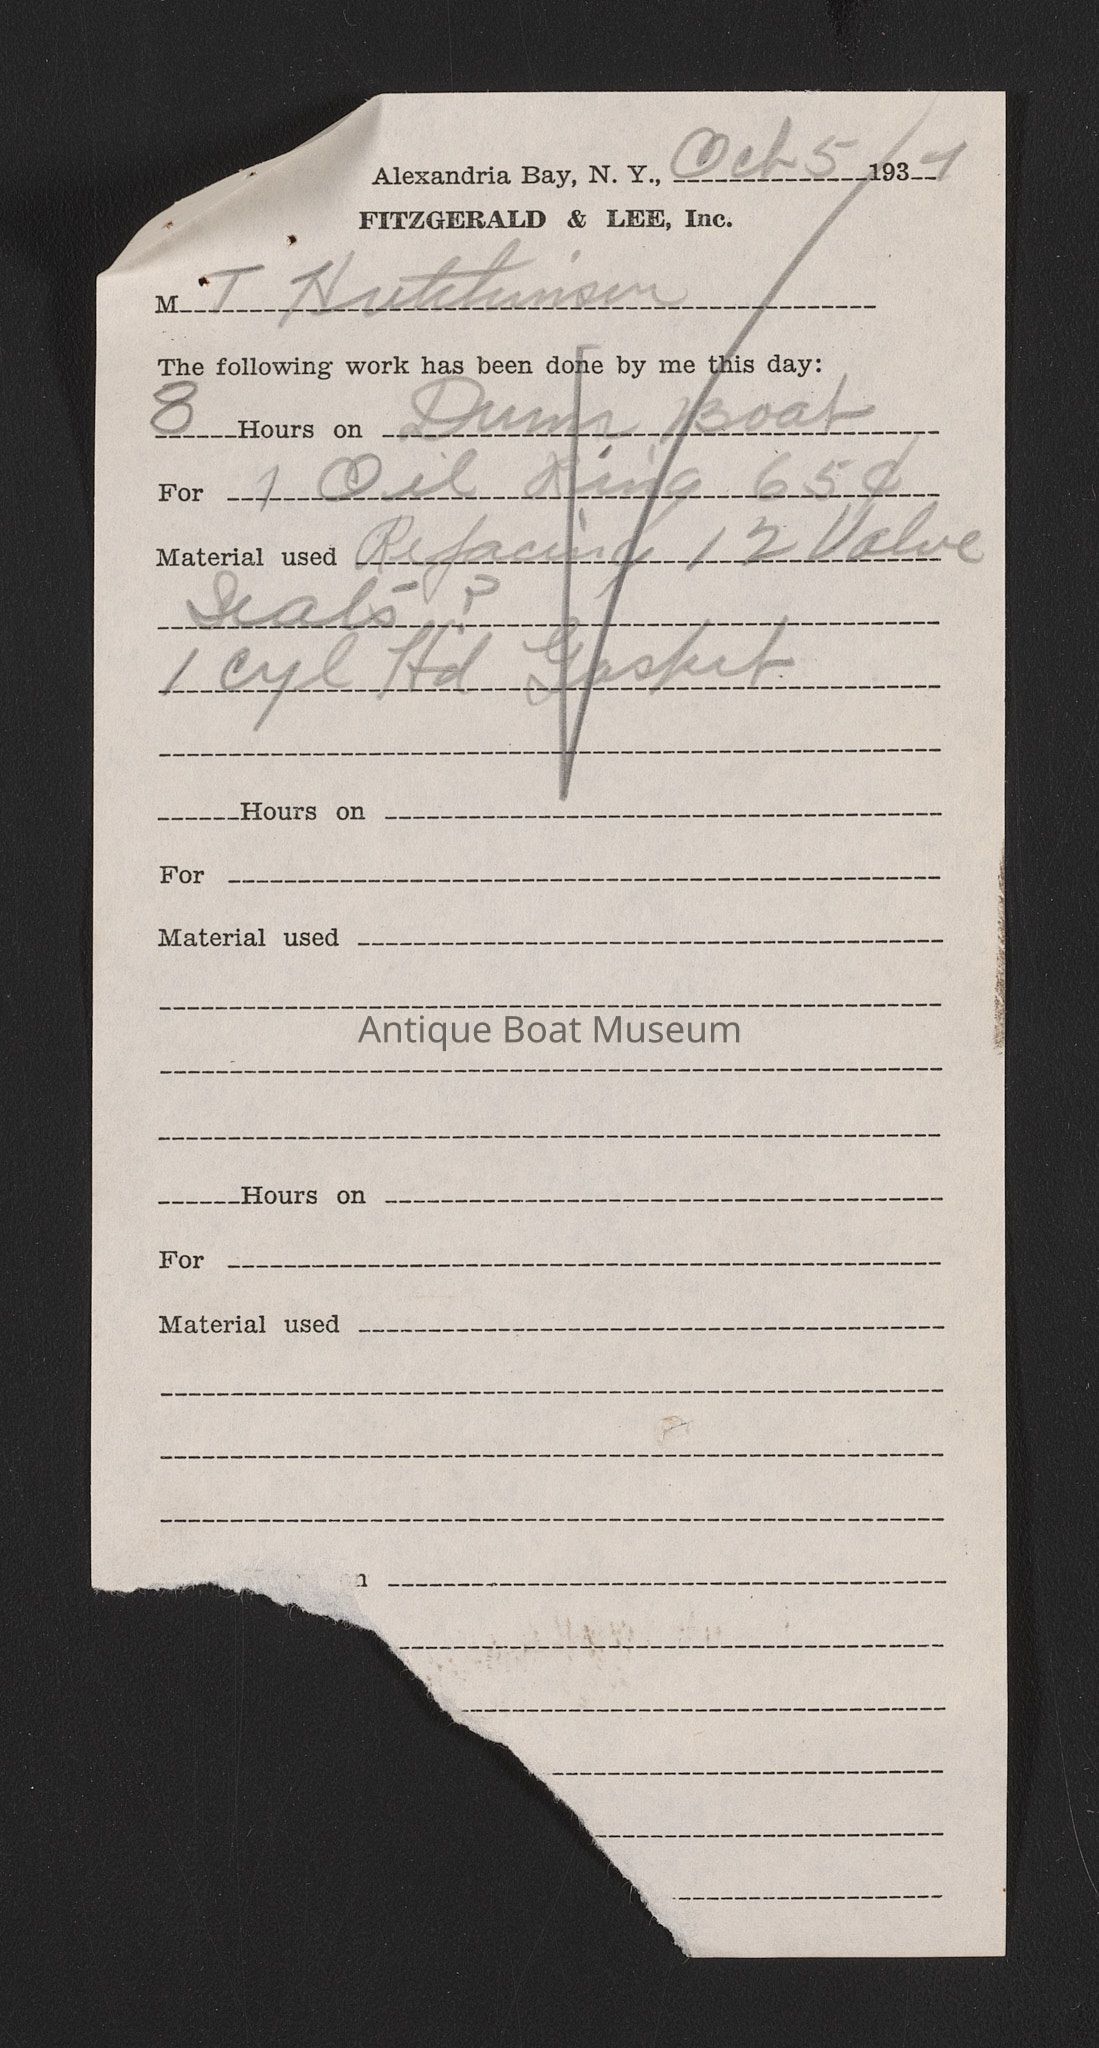 Alexandria Bay, N. Y., Oct 5 193
FITZGERALD & LEE, Inc.
M T Hutchinson
The following work has been done by me this day:
8 Hours on Boat
For 1 Oil Ring 65¢
Material used Refacing 12 Valve
Seats ?
1 Cyl Hd Gasket
Hours on
For
Material used
Antique Boat Museum
Hours on
For
Material used
n